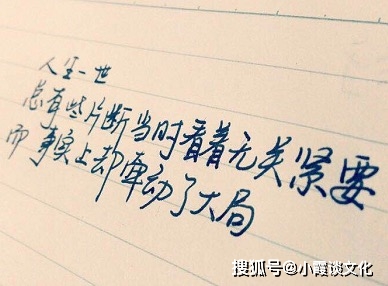 人生一世
总有些片断当时看着无关紧要
而事实上却牵动了大局
搜狐号@小霞谈文化